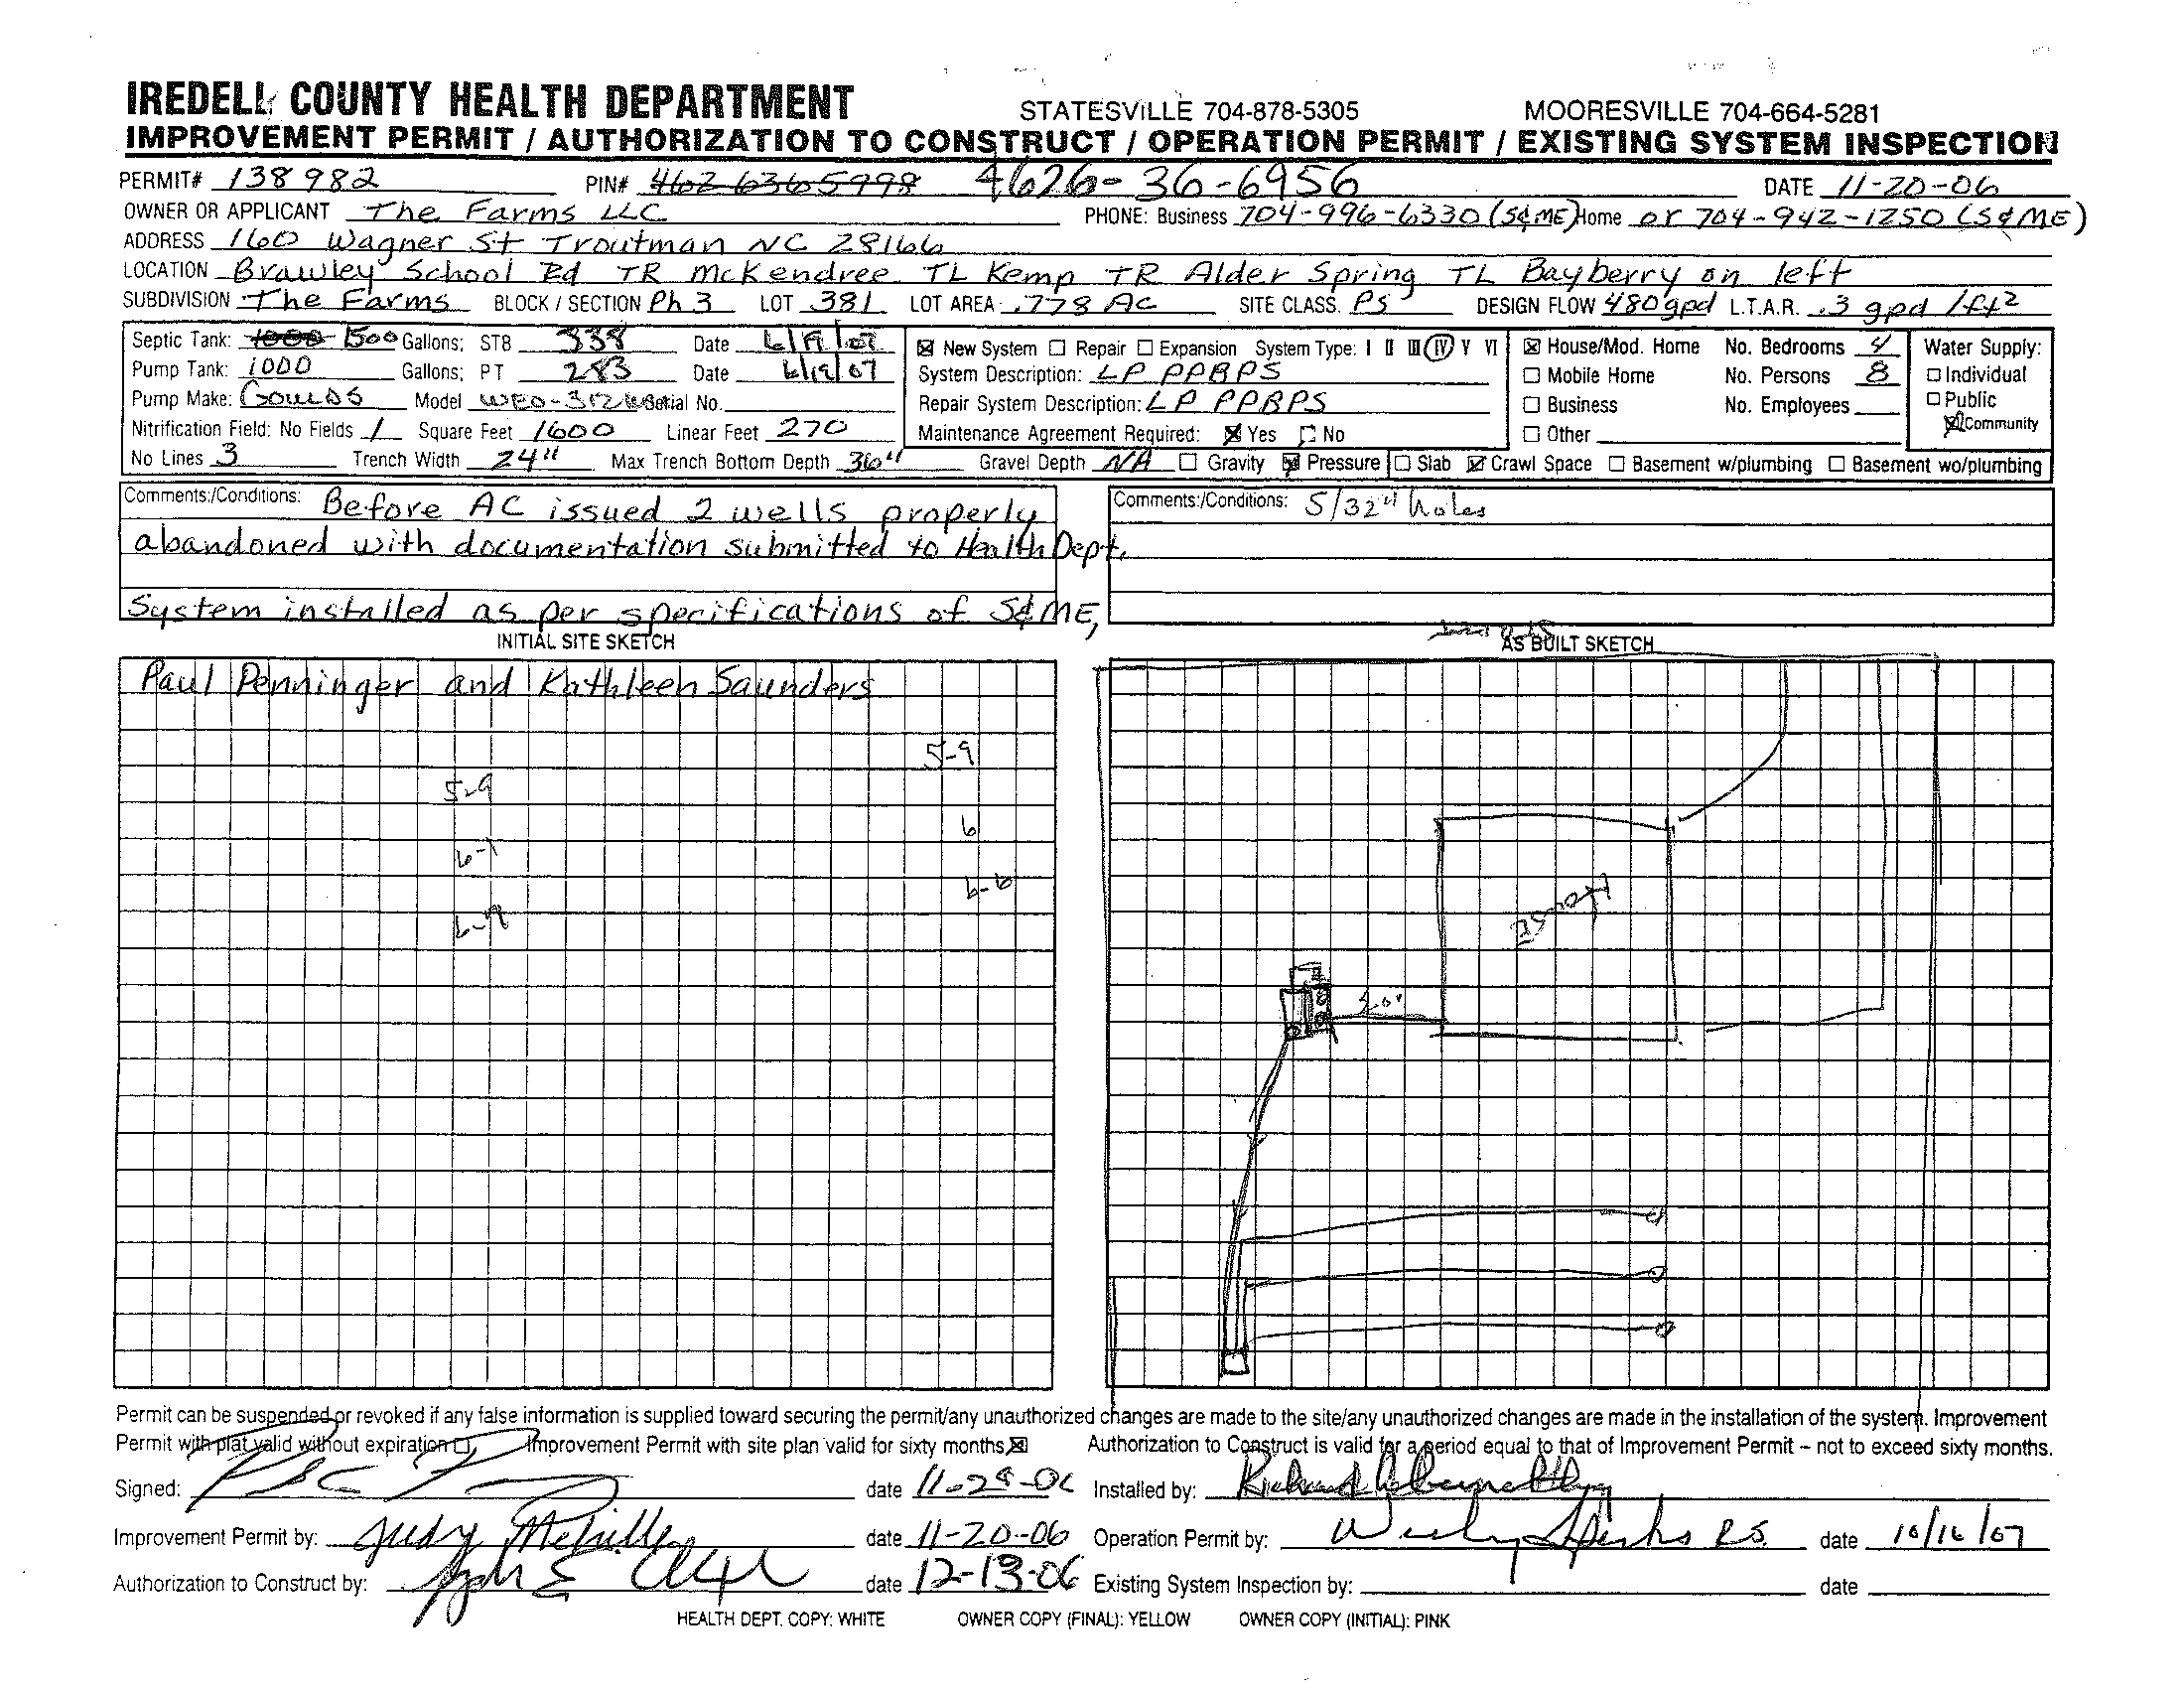 IREDELL COUNTY HEALTH DEPARTMENT STATESVILLE 704-878-5305 MOORESVILLE 704-664-5281
IMPROVEMENT PERMIT / AUTHORIZATION TO CONSTRUCT / OPERATION PERMIT / EXISTING SYSTEM INSPECTION
PERMIT# 138982 PIN# 4626365998 4626-36-6956 DATE 11-20-06
OWNER OR APPLICANT The Farms LLC PHONE: Business 704-996-6330 (S&ME) Home or 704-942-1250 (S&ME)
ADDRESS 160 Wagner St Troutman NC 28166
LOCATION Brawley School Rd TR McKendree TL Kemp TR Alder Spring TL Bayberry on left
SUBDIVISION The Farms BLOCK / SECTION Ph 3 LOT 381 LOT AREA .778 AC SITE CLASS. PS DESIGN FLOW 480gpd L.T.A.R. .3 gpd /ft2
Septic Tank: 1000 1500 Gallons; STB 338 Date 6/19/07
Pump Tank: 1000 Gallons; PT 283 Date 6/19/07
Pump Make: Goulds Model Serial No.
Nitrification Field: No Fields 1 Square Feet 1600 Linear Feet 270
No Lines 3 Trench Width 24" Max Trench Bottom Depth 36" Gravel Depth N/A ☐ Gravity ☒ Pressure
☒ New System ☐ Repair ☐ Expansion System Type: I II III IV V VI
System Description: LP PPBPS
Repair System Description: LP PPBPS
Maintenance Agreement Required: ☒ Yes ☐ No
☒ House/Mod. Home No. Bedrooms 4
☐ Mobile Home No. Persons 8
☐ Business No. Employees
☐ Other
☐ Slab ☒ Crawl Space ☐ Basement w/plumbing ☐ Basement wo/plumbing
Water Supply:
☐ Individual
☐ Public
☒ Community
Comments:/Conditions: Before AC issued 2 wells properly
abandoned with documentation submitted to Health Dept.
System installed as per specifications of S&ME,
Comments:/Conditions: 5/32" holes
INITIAL SITE SKETCH
Paul Penninger and Kathleen Saunders
5-9
5-9
6
6-6
AS BUILT SKETCH
Permit can be suspended or revoked if any false information is supplied toward securing the permit/any unauthorized changes are made to the site/any unauthorized changes are made in the installation of the system. Improvement
Permit with plat valid without expiration ☐, Improvement Permit with site plan valid for sixty months ☒ Authorization to Construct is valid for a period equal to that of Improvement Permit – not to exceed sixty months.
Signed: date Installed by: Richard Abernathy
Improvement Permit by: Judy date 11-20-06 Operation Permit by: R.S. date 10/16/07
Authorization to Construct by: date 12-13-06 Existing System Inspection by: date
HEALTH DEPT. COPY: WHITE OWNER COPY (FINAL): YELLOW OWNER COPY (INITIAL): PINK